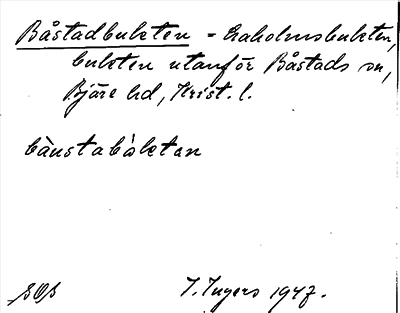 Båstadbukten = Laholmsbukten,
bukten utanför Båstads sn,
Bjäre hd, Krist. l.
bàustabàktan
SOS I. Ingers 1947.